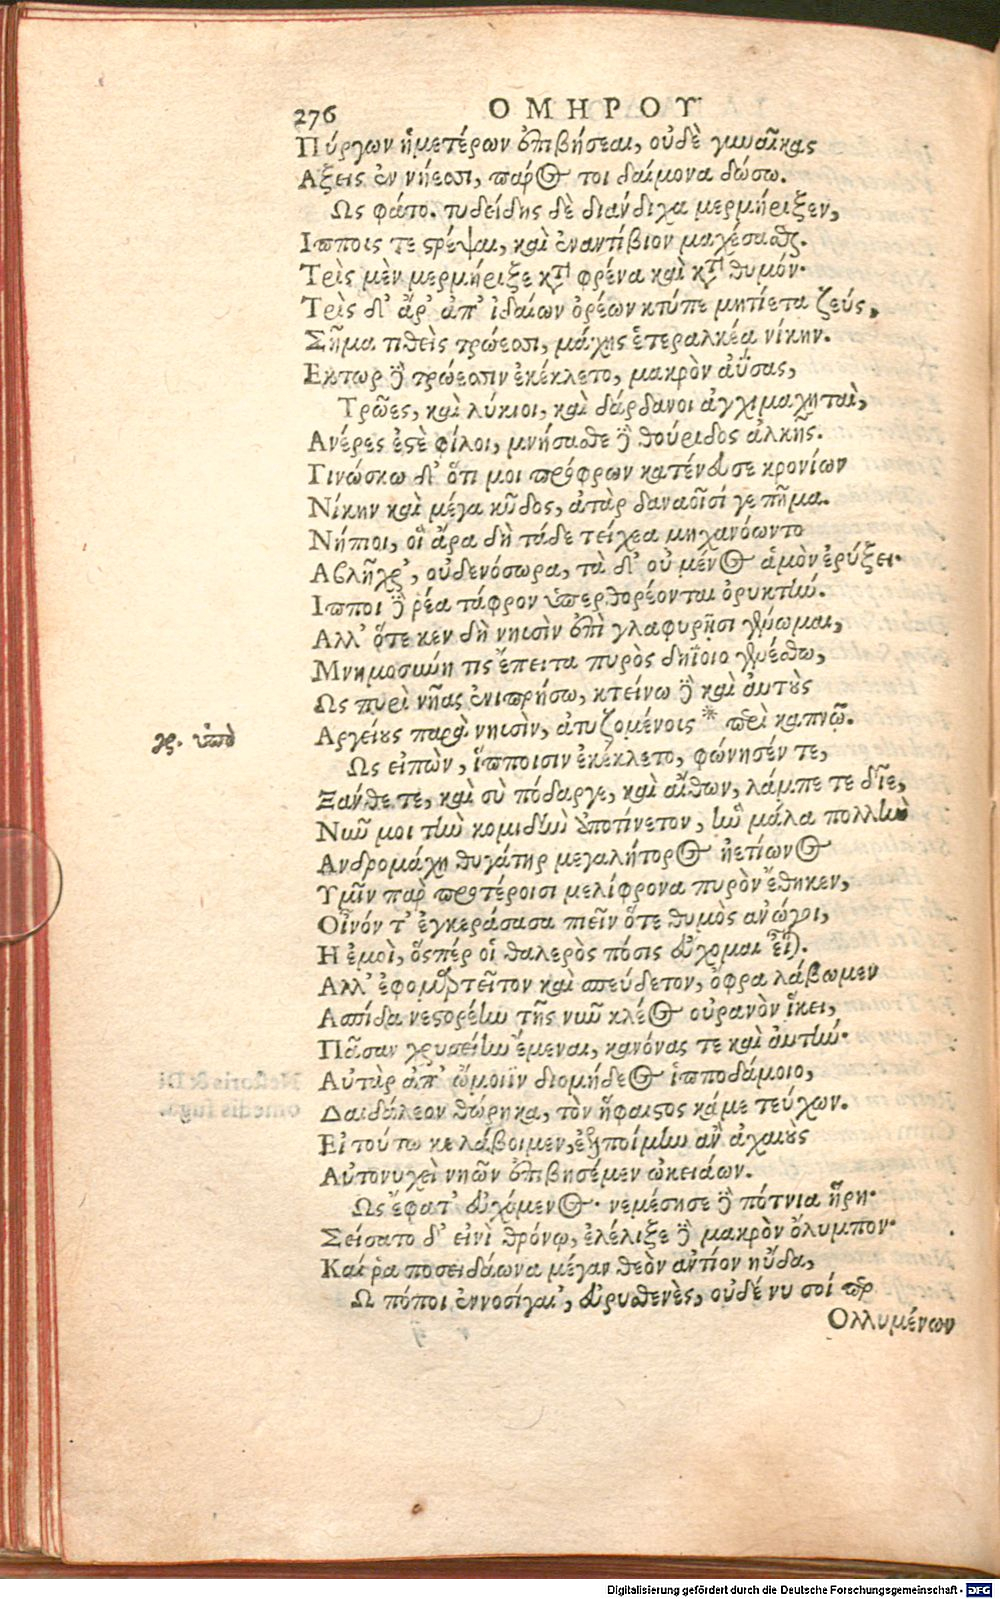 276 ΟΜΗΡΟΥ
Πύργων ἡμετέρων ἐπιβήσεαι, οὐδὲ γυναῖκας
Αξεις ἐν νήεσσι, πάρος τοι δαίμονα δώσω.
Ως φάτο. τυδείδης δὲ διάνδιχα μερμήριξεν,
Ιπποις τε στρέψαι, καὶ ἐναντίβιον μαχέσασθαι.
Τρὶς μὲν μερμήριξε κατὰ φρένα καὶ κατὰ θυμόν·
Τρὶς δ' ἄρ' ἀπ' ἰδαίων ὀρέων κτύπε μητίετα ζεύς,
Σῆμα τιθεὶς τρώεσσι, μάχης ἑτεραλκέα νίκην.
Εκτωρ δὲ τρώεσσιν ἐκέκλετο, μακρὸν ἀΰσας,
Τρῶες, καὶ λύκιοι, καὶ δάρδανοι ἀγχιμαχηταὶ,
Ανέρες ἐστὲ φίλοι, μνήσασθε δὲ θούριδος ἀλκῆς.
Γινώσκω δ' ὅτι μοι πρόφρων κατένευσε κρονίων
Νίκην καὶ μέγα κῦδος, ἀτὰρ δαναοῖσί γε πῆμα.
Νήπιοι, οἳ ἄρα δὴ τάδε τείχεα μηχανόωντο
Αβλῆχρ', οὐδενόσωρα, τὰ δ' οὐ μένος ἁμὸν ἐρύξει·
Ιπποι δὲ ῥέα τάφρον ὑπερθορέονται ὀρυκτὴν.
Αλλ' ὅτε κεν δὴ νηυσὶν ἐπὶ γλαφυρῇσι γένωμαι,
Μνημοσύνη τις ἔπειτα πυρὸς δηΐοιο γενέσθω,
Ως πυρὶ νῆας ἐνιπρήσω, κτείνω δὲ καὶ αὐτοὺς
Αργείους παρὰ νηυσὶν, ἀτυζομένοις * περὶ καπνῷ.
γρ. ὑπὸ
Ως εἰπὼν, ἵπποισιν ἐκέκλετο, φώνησέν τε,
Ξάνθε τε, καὶ σὺ πόδαργε, καὶ αἴθων, λάμπε τε δῖε,
Νῦν μοι τὴν κομιδὴν ἀποτίνετον, ἣν μάλα πολλὴν
Ανδρομάχη θυγάτηρ μεγαλήτορος ἠετίωνος
Υμῖν παρ προτέροισι μελίφρονα πυρὸν ἔθηκεν,
Οἶνόν τ' ἐγκεράσασα πιεῖν ὅτε θυμὸς ἀνώγοι,
Η ἐμοὶ, ὅσπέρ οἱ θαλερὸς πόσις εὔχομαι εἶναι.
Αλλ' ἐφομαρτεῖτον καὶ σπεύδετον, ὄφρα λάβωμεν
Ασπίδα νεστορέην τῆς νῦν κλέος οὐρανὸν ἵκει,
Πᾶσαν χρυσείην ἔμεναι, κανόνας τε καὶ αὐτὴν·
Αὐτὰρ ἀπ' ὤμοιϊν διομήδεος ἱπποδάμοιο,
Δαιδάλεον θώρηκα, τὸν ἥφαιστος κάμε τεύχων.
Εἰ τούτω κε λάβοιμεν, ἐελποίμην ἂν ἀχαιοὺς
Αὐτονυχὶ νηῶν ἐπιβησέμεν ὠκειάων.
Ως ἔφατ' εὐχόμενος· νεμέσησε δὲ πότνια ἥρη·
Σείσατο δ' εἰνὶ θρόνῳ, ἐλέλιξε δὲ μακρὸν ὄλυμπον·
Καί ῥα ποσειδάωνα μέγαν θεὸν ἀντίον ηὔδα,
Ω πόποι ἐννοσίγαι', εὐρυσθενὲς, οὐδέ νυ σοί περ
Ολλυμένων
Digitalisierung gefördert durch die Deutsche Forschungsgemeinschaft - DFG